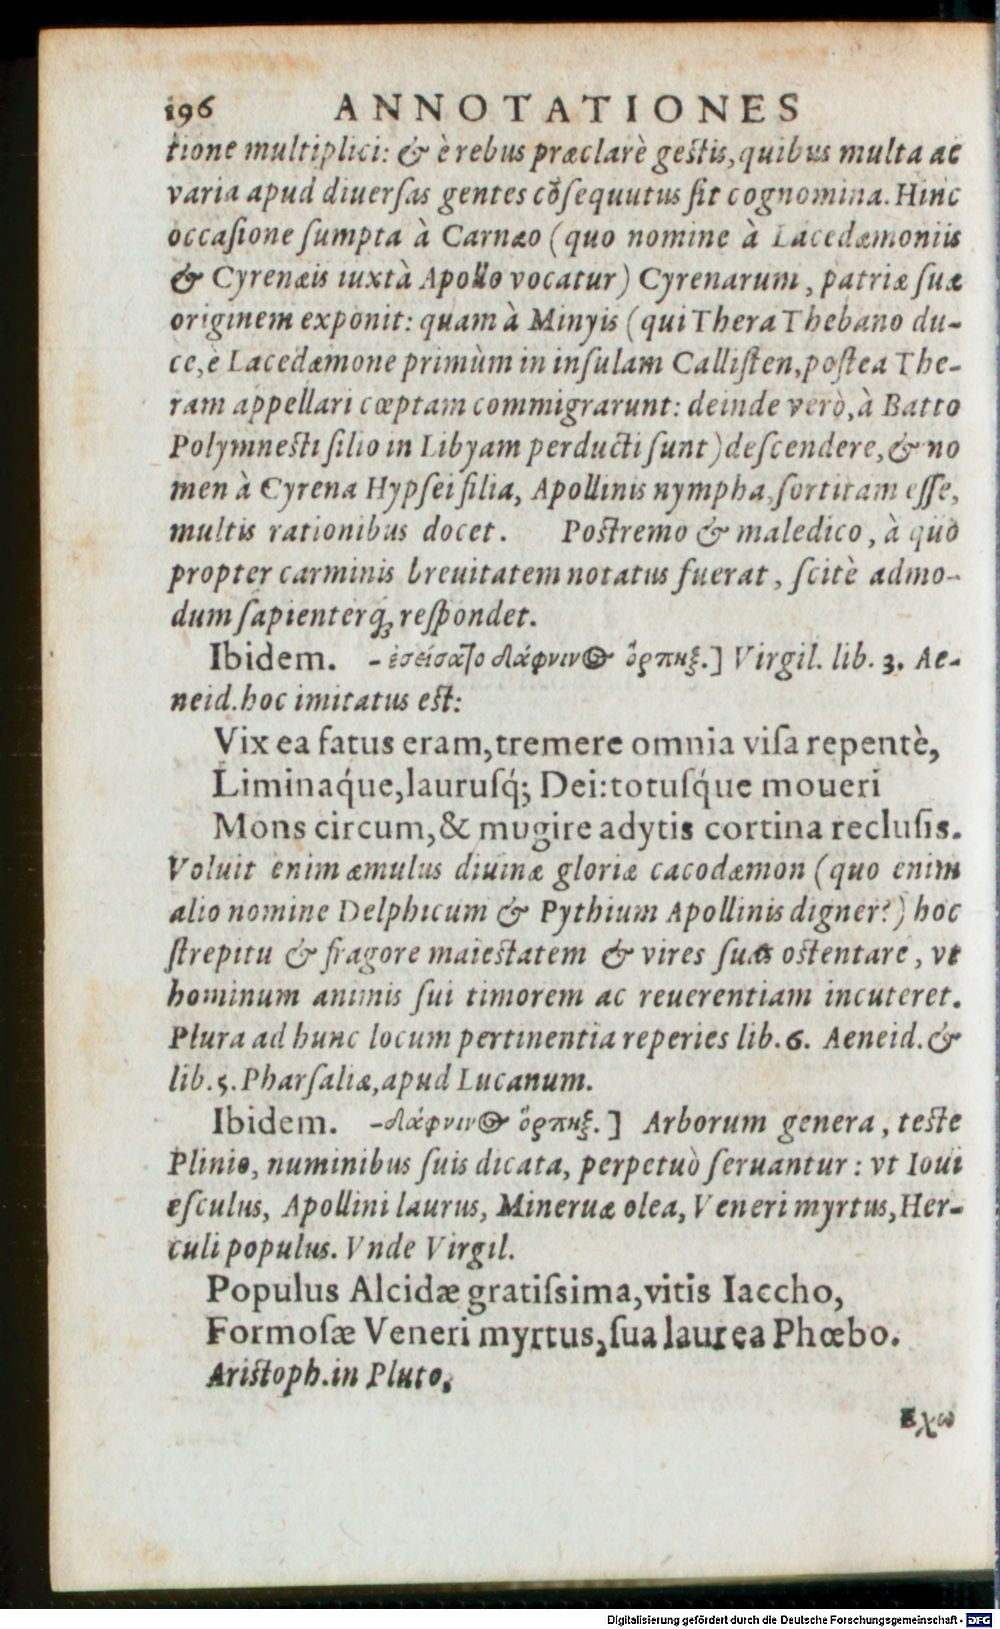 196 ANNOTATIONES
tione multiplici: & è rebus præclarè gestis, quibus multa ac
varia apud diuersas gentes cōsequutus sit cognomina. Hinc
occasione sumpta à Carnæo (quo nomine à Lacedæmoniis
& Cyrenæis iuxtà Apollo vocatur) Cyrenarum, patriæ suæ
originem exponit: quam à Minyis (qui Thera Thebano du-
ce, è Lacedæmone primùm in insulam Callisten, postea The-
ram appellari cœptam commigrarunt: deinde verò, à Batto
Polymnesti filio in Libyam perducti sunt) descendere, & no
men à Cyrena Hypsei filia, Apollinis nympha, sortitam esse,
multis rationibus docet. Postremo & maledico, à quo
propter carminis breuitatem notatus fuerat, scitè admo-
dum sapienterq́; respondet.
Ibidem. - ἐσείσατο δάφνινος ὅρπηξ.] Virgil. lib. 3. Ae-
neid. hoc imitatus est:
Vix ea fatus eram, tremere omnia visa repentè,
Liminaq́ue, laurusq́; Dei: totusq́ue moueri
Mons circum, & mugire adytis cortina reclusis.
Voluit enim æmulus diuinæ gloriæ cacodæmon (quo enim
alio nomine Delphicum & Pythium Apollinis digner?) hoc
strepitu & fragore maiestatem & vires suas ostentare, vt
hominum animis sui timorem ac reuerentiam incuteret.
Plura ad hunc locum pertinentia reperies lib. 6. Aeneid. &
lib. 5. Pharsaliæ, apud Lucanum.
Ibidem. -δάφνινος ὅρπηξ.] Arborum genera, teste
Plinio, numinibus suis dicata, perpetuò seruantur: vt Ioui
esculus, Apollini laurus, Mineruæ olea, Veneri myrtus, Her-
culi populus. Vnde Virgil.
Populus Alcidæ gratissima, vitis Iaccho,
Formosæ Veneri myrtus, sua laurea Phœbo.
Aristoph. in Pluto.
Εχω
Digitalisierung gefördert durch die Deutsche Forschungsgemeinschaft - DFG